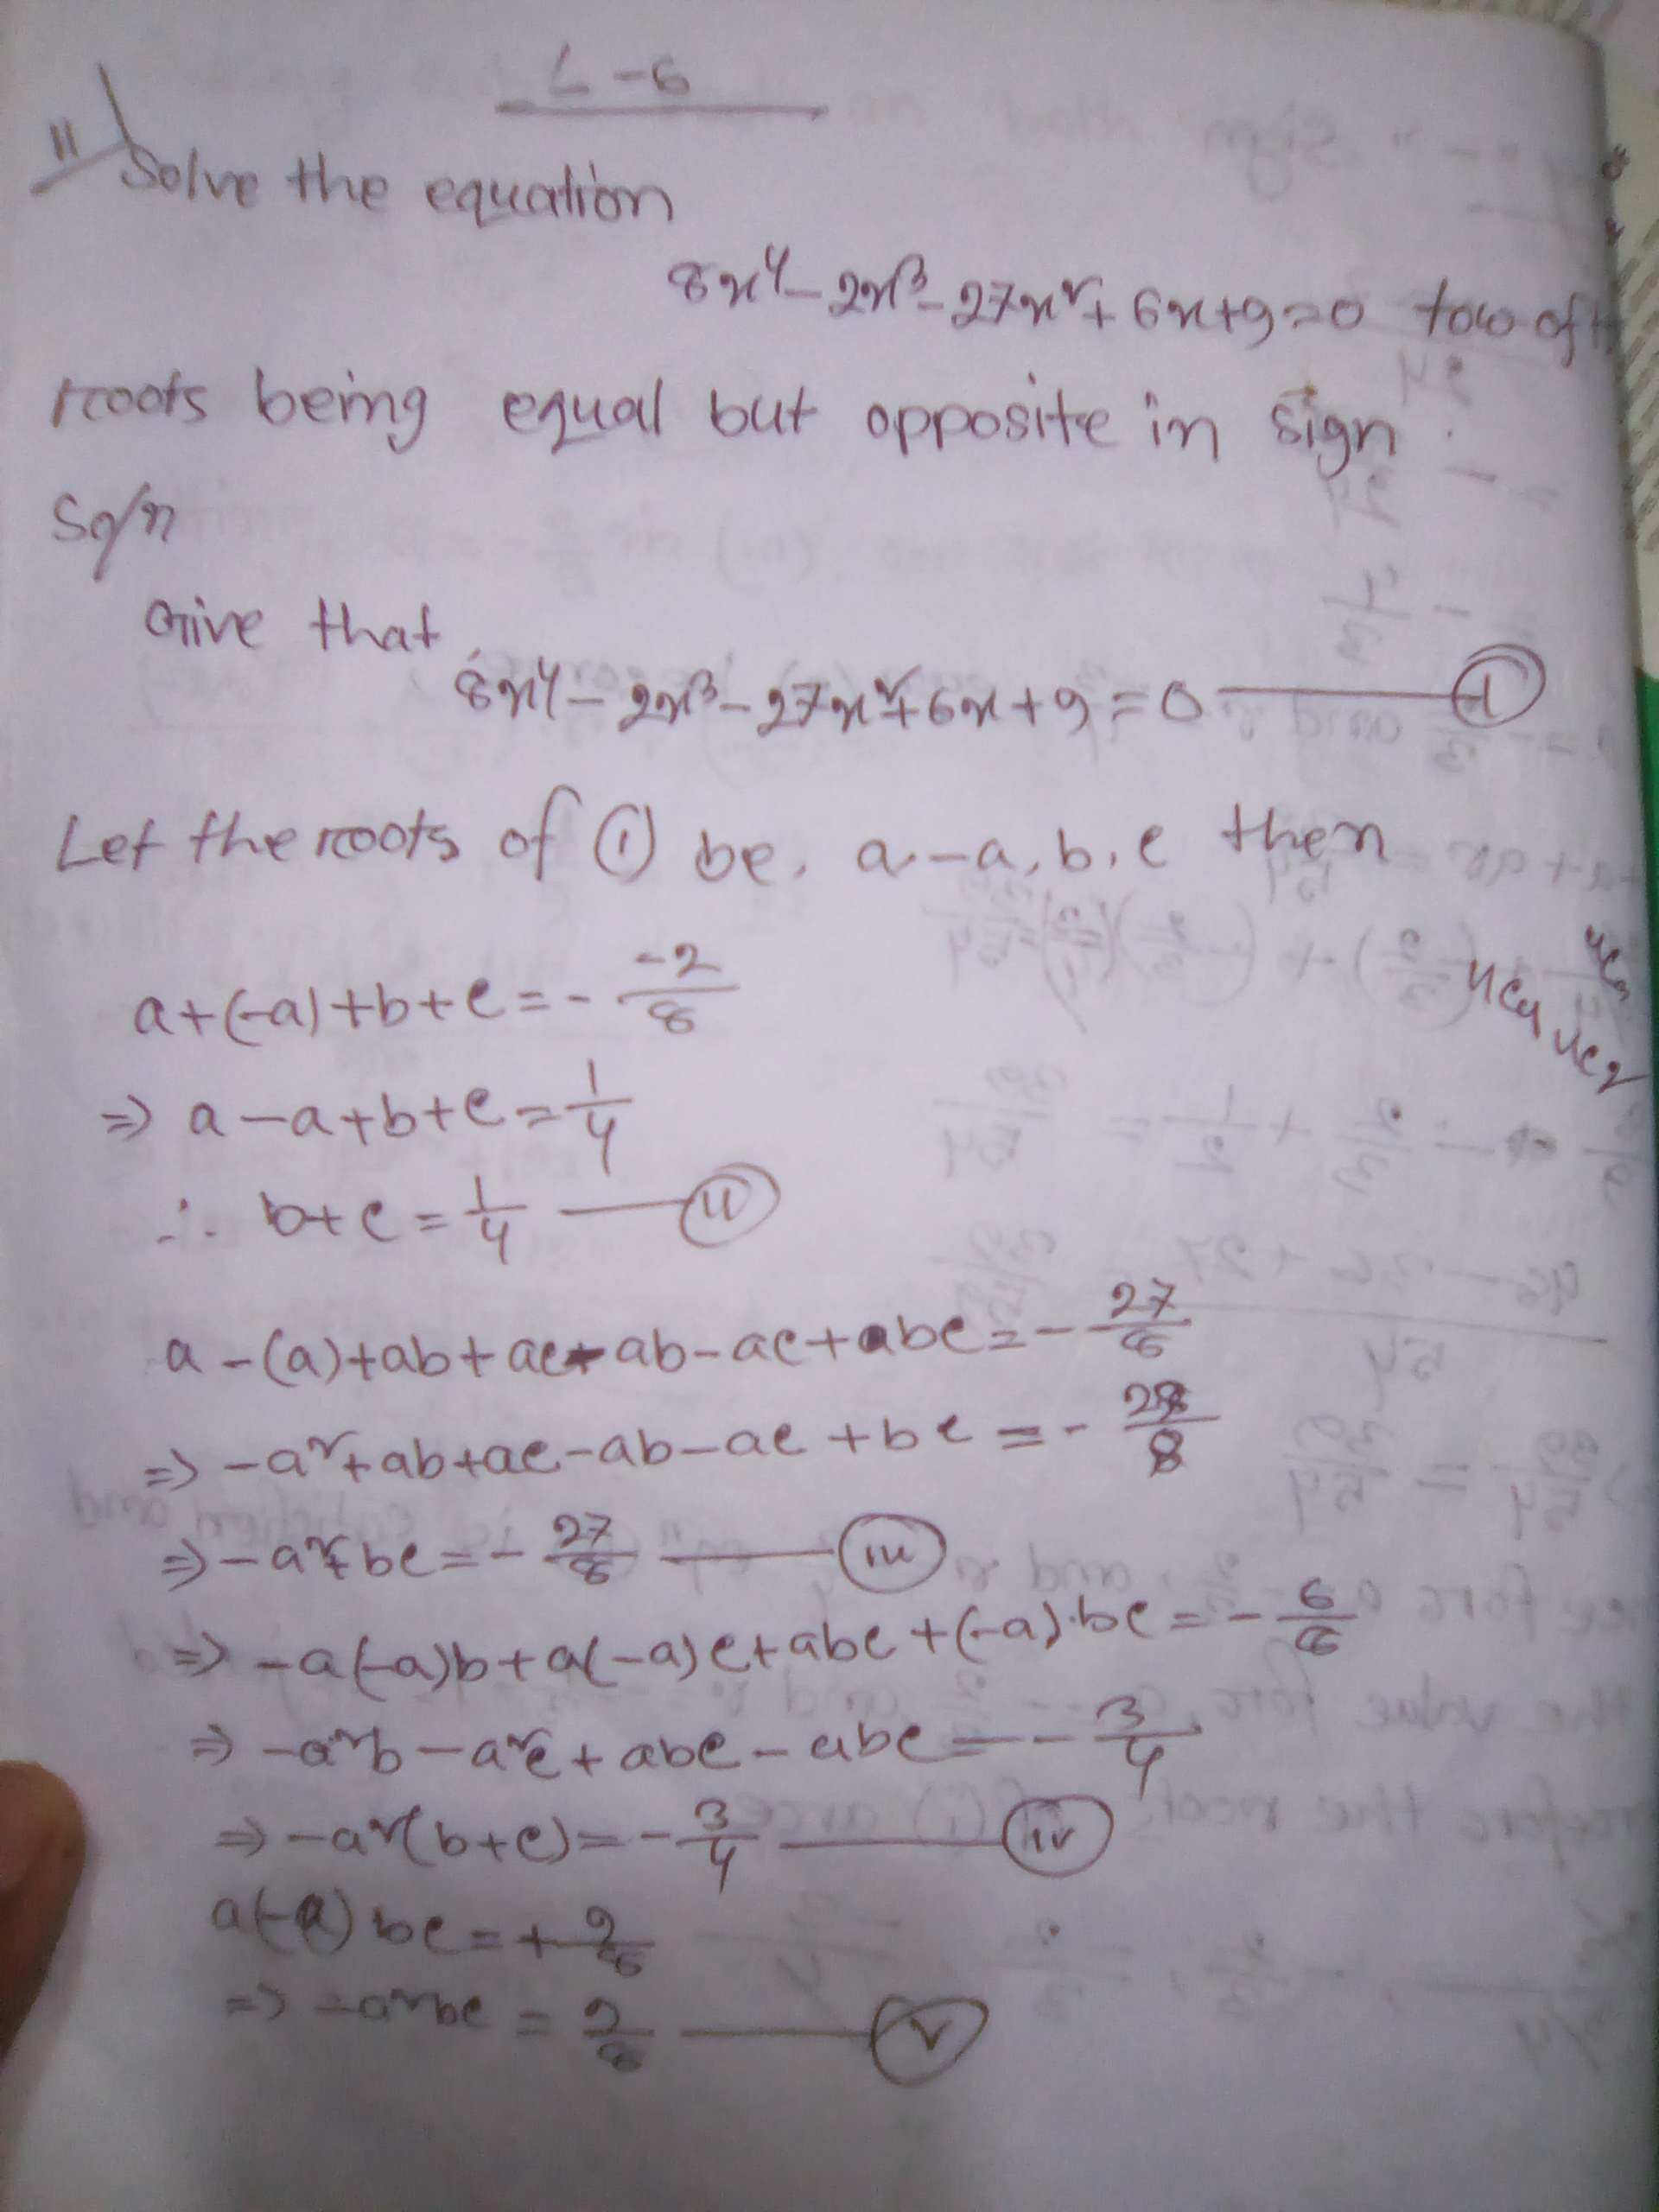 L-6
11 Solve the equation
8x⁴-2x³-27x²+6x+9=0 tow of
roots being equal but opposite in sign
Soln
Give that
8x⁴-2x³-27x²+6x+9=0 — (i)
Let the roots of (1) be, a,-a, b, c then
a+(-a)+b+c=- -2/8
=> a-a+b+c=1/4
∴ b+c=1/4 — (ii)
a-(a)+ab+ac-ab-ac+bc=-27/8
=> -a²+ab+ac-ab-ac+bc=-27/8
=> -a²+bc=-27/8 — (iii)
=> -a(-a)b+a(-a)c+abc+(-a).bc=-6/8
=> -a²b-a²c+abc-abc=-3/4
=> -a²(b+c)=-3/4 — (iv)
a(-a) bc=+9/8
=> -a²bc=9/8 — (v)